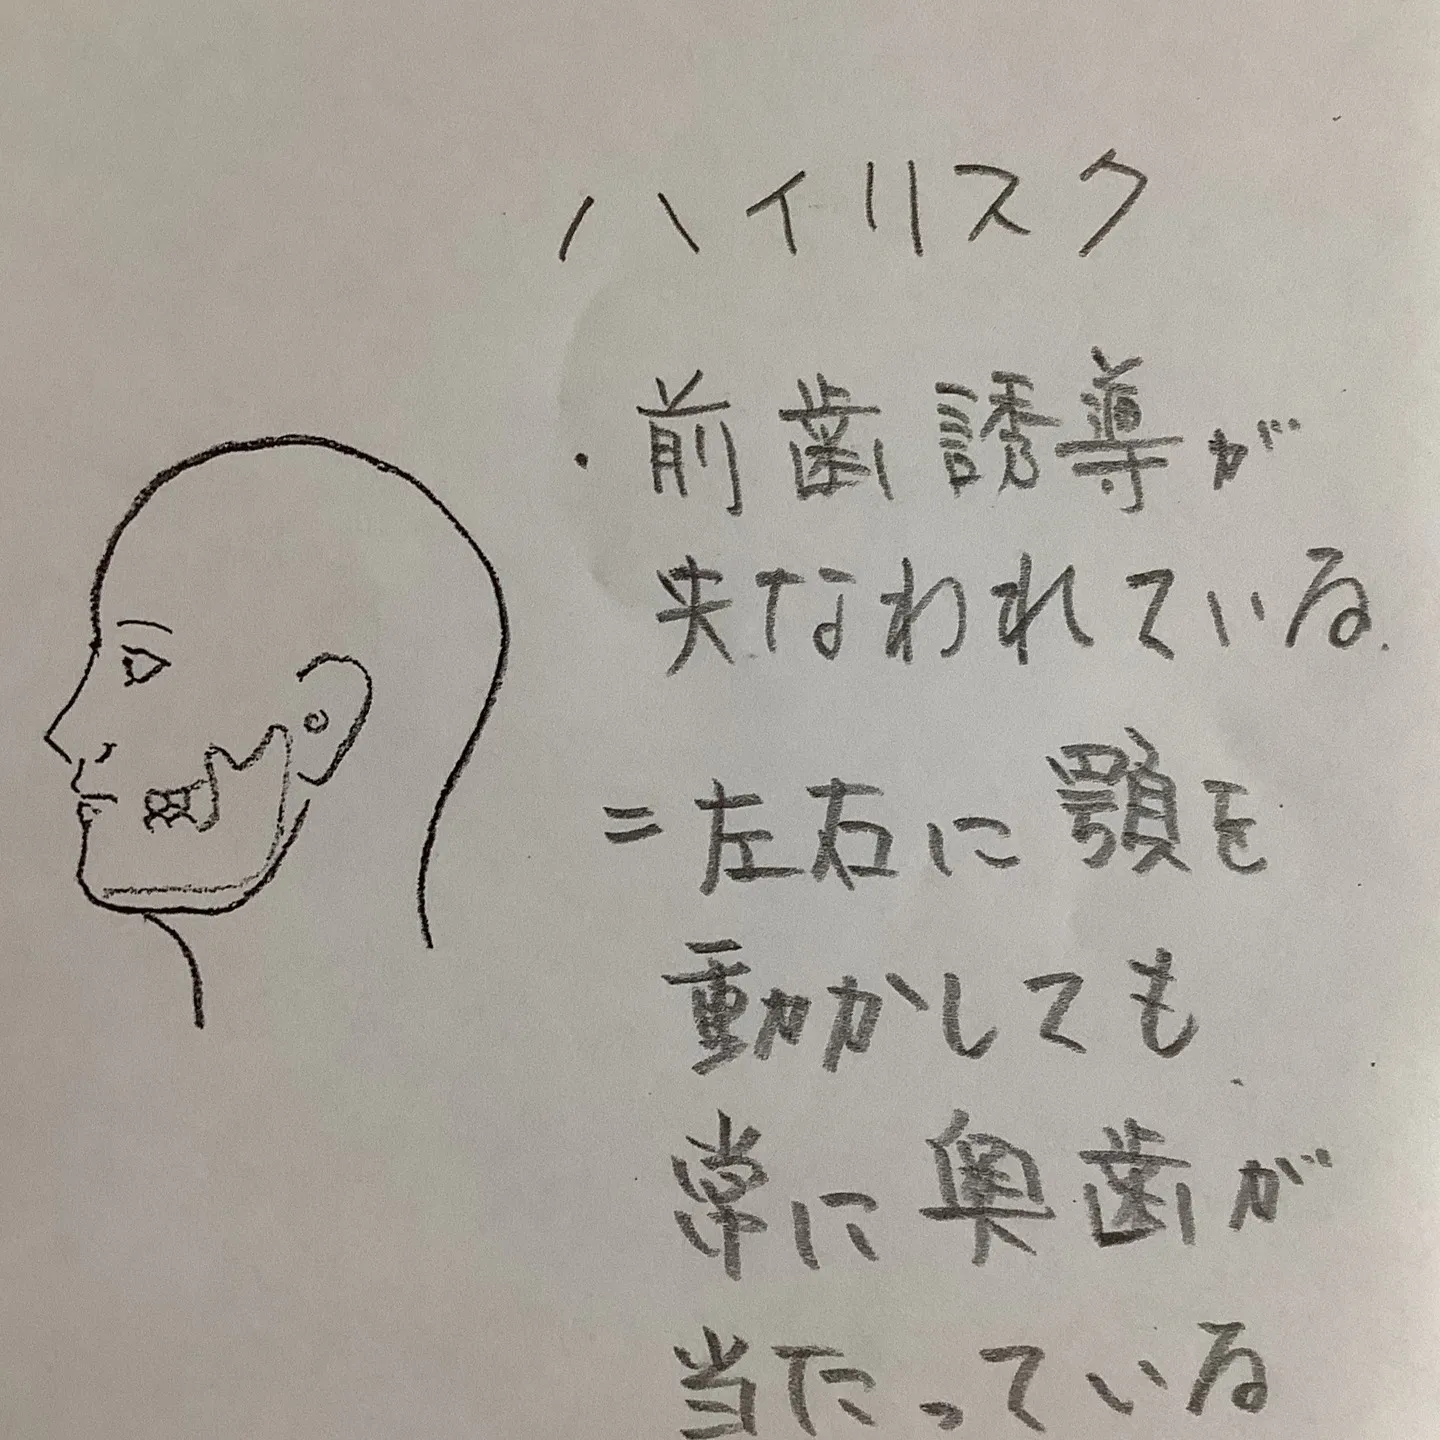 ハイリスク
・前歯誘導が
失なわれている.
=左右に顎を
動かしても
常に奥歯が
当たっている